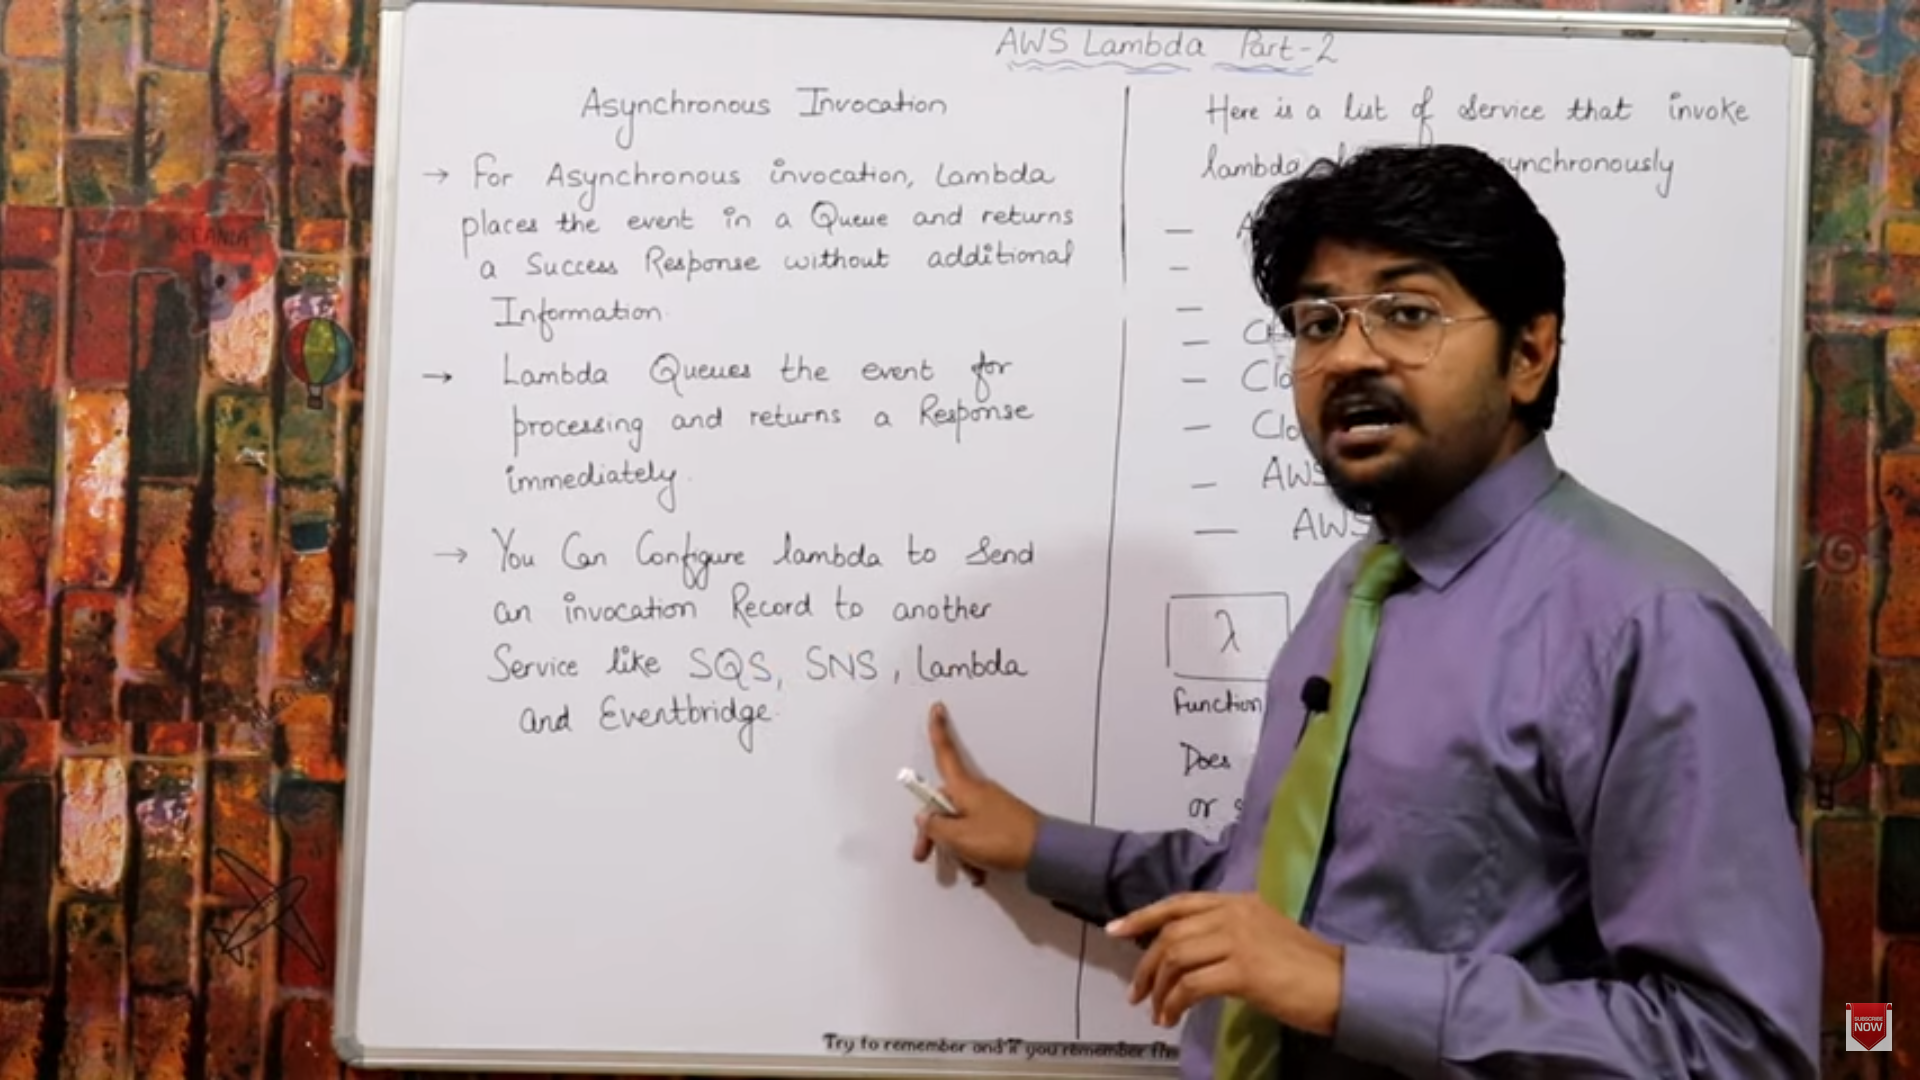 AWS Lambda Part-2
Asynchronous Invocation
→ For Asynchronous invocation, Lambda
places the event in a Queue and returns
a Success Response without additional
Information.
→ Lambda Queues the event for
processing and returns a Response
immediately.
→ You Can Configure lambda to Send
an invocation Record to another
Service like SQS, SNS, Lambda
and Eventbridge.
Here is a list of Service that invoke
lambda
—
—
—
—
—
—
— AWS
— AWS
λ
function
Does
or
Try to remember and if you remember the
SUBSCRIBE
NOW
OCEANIA